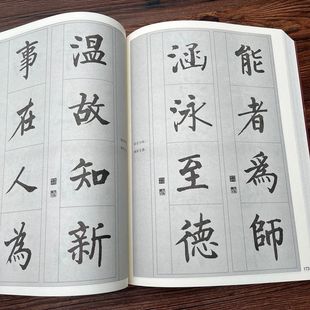 能者為師
涵泳至德
温故知新
事在人為
173